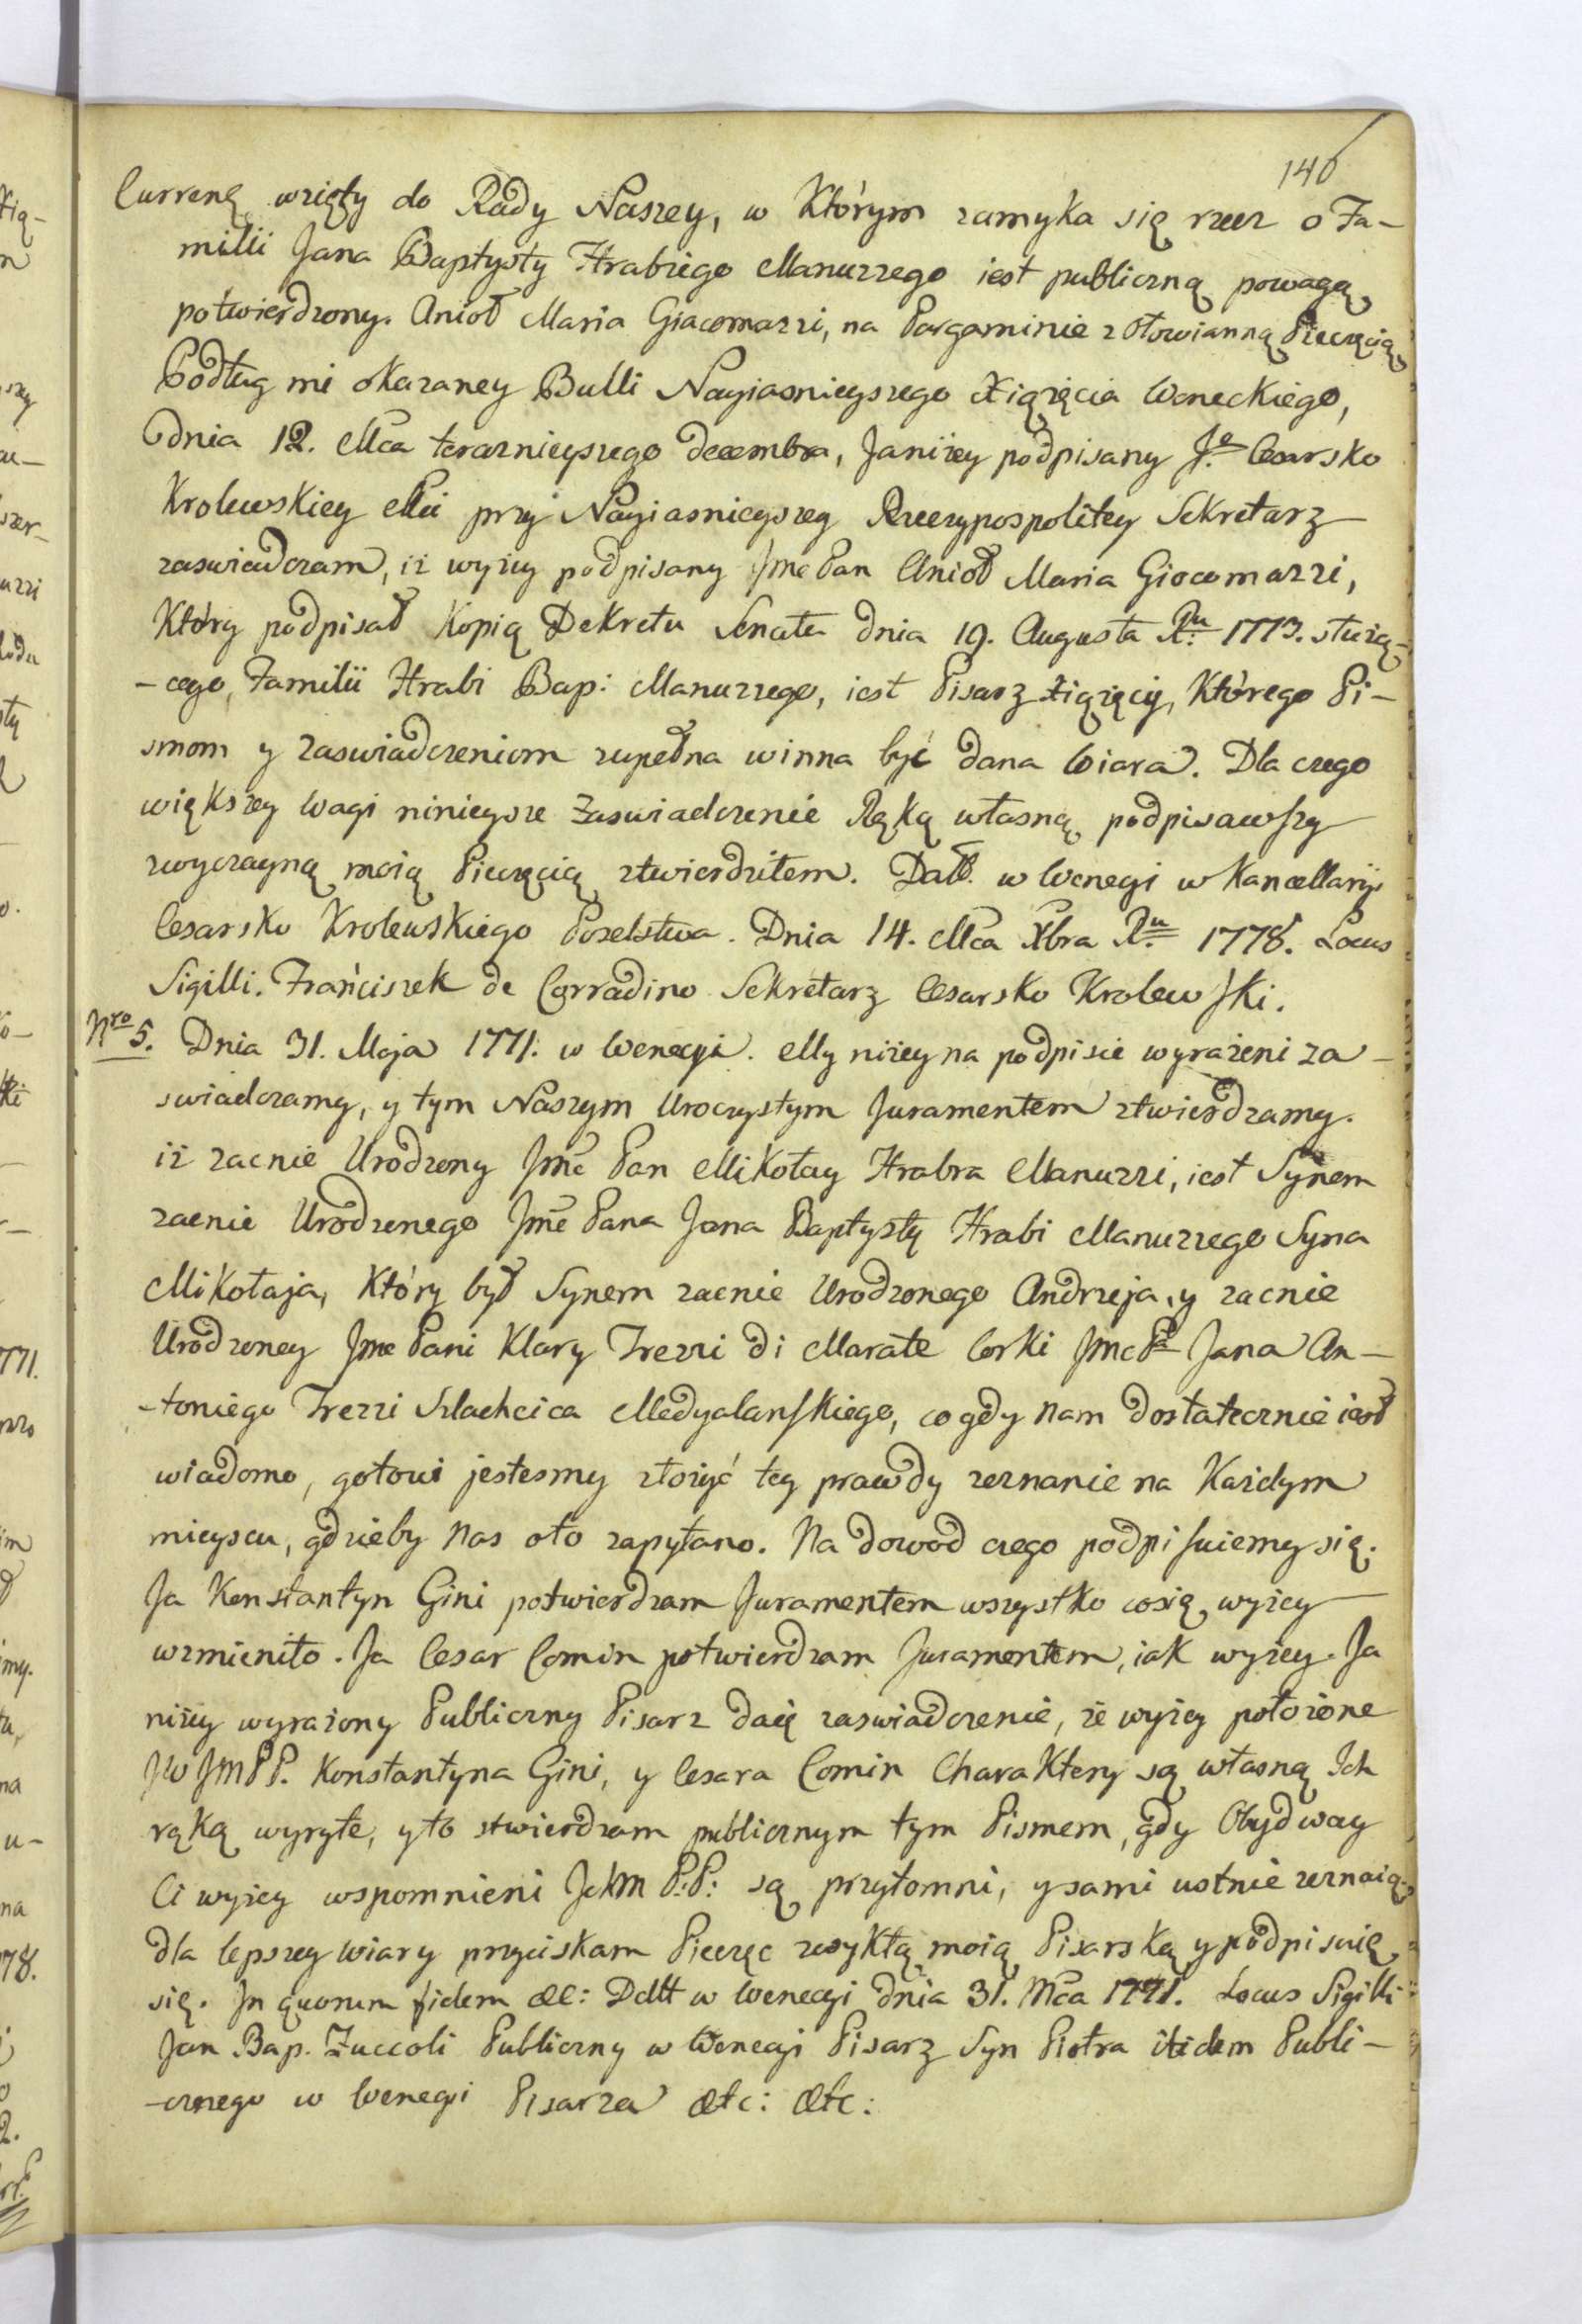 140
Currenę wzięty do Rady Naszey, w Którym zamyka się rzecz o Fa-
milii Jana Baptysty Hrabiego Manuzzego iest publiczną powagą
potwierdzony. Anioł Maria Giacomazzi, na Pargaminie z ołowianną Pieczęcią
Podług mi okazaney Bulli Nayiasnieyszego Xiążęcia Weneckiego,
dnia 12. Mca teraznieyszego decembra, Ja niżey podpisany Je. Cesarsko
Krolewskiey Mci przy Nayiasnieyszey Rzeczypospolitey Sekretarz
zaswiadczam, iż wyżey podpisany Jmc Pan Anioł Maria Giocomazzi,
Który podpisał Kopią Dekretu Senatu dnia 19. Augusta Ru 1773. służą-
-cego, Familii Hrabi Bap: Manuzzego, iest Pisarz Xiążęcy, Którego Pi-
smom y zaswiadczeniom zupełna winna być dana Wiara. Dla czego
większey Wagi ninieysze Zaswiadczenie Ręką własną podpisawszy
zwyczayną moią Pieczęcią ztwierdziłem. Datt. w Wenegi w Kancellaryi
Cesarsko Krolewskiego Poselstwa. Dnia 14. Mca Xbra Ru 1778. Locus
Sigilli. Franciszek de Corradino Sekretarz Cesarsko Krolewski.
Nro 5. Dnia 31. Maja 1771. w Wenecyi. My niżey na podpisie wyrażeni za-
swiadczamy, y tym Naszym Uroczystym Juramentem ztwierdzamy.
iż zacnie Urodzony Jmc Pan Mikołay Hrabia Manuzzi, iest Synem
zacnie Urodzonego Jmc Pana Jana Baptysty Hrabi Manuzzego Syna
Mikołaja, Który był Synem zacnie Urodzonego Andrzeja, y zacnie
Urodzoney Jmc Pani Klary Trezzi di Marate Corki Jmc Pa Jana An-
-toniego Trezzi Szlachcica Medyalanskiego, co gdy Nam dostatecznie iest
wiadomo, gotowi jestesmy złożyć tey prawdy zeznanie na Każdym
mieyscu, gdzieby Nas oto zapytano. Na dowod czego podpisuiemy się.
Ja Konstantyn Gini potwierdzam Juramentem wszystko cosię wyżey
wzmieniło. Ja Cesar Comin potwierdzam Juramentem, iak wyżey. Ja
niżey wyrażony Publiczny Pisarz daię zaswiadczenie, że wyżey położone
JW JmPP. Konstantyna Gini, y Cesara Comin Charaktery są własną Ich
ręką wyryte, y to stwierdzam publicznym tym Pismem, gdy Obydway
Ci wyżey wspomnieni JchM P:P: są przytomni, y sami ustnie zeznaią.
dla lepszey wiary przyciskam Pieczęc zwykłą moią Pisarską y podpisuię
się. In quorum fidem &c: Datt w Wenecyi dnia 31. Mca 1771. Locus Sigilli
Jan Bap. Zuccoli Publiczny w Wenecyi Pisarz Syn Piotra itidem Publi-
-cznego w Wenegii Pisarza &tc: &tc: